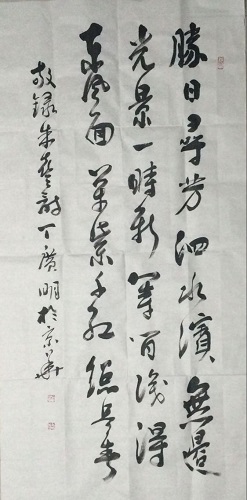 勝日尋芳泗水濱無邊
光景一時新等閒識得
東風面萬紫千紅總是春
敬録朱熹詩丁廣明於京華